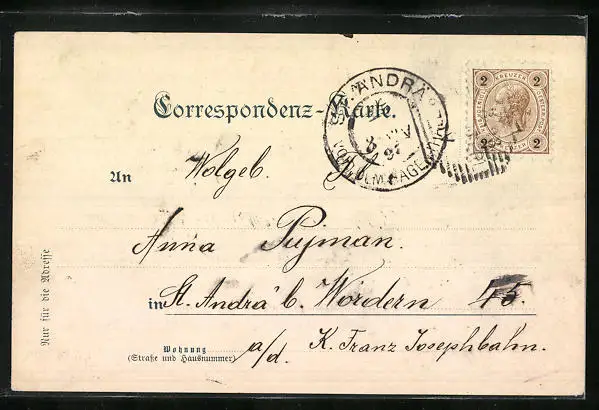 Correspondenz-Karte.
ST. ANDRÄ
VOR DEM HAGENTHALE
97
2 KREUZER 2
2 2
An Wolgeb. Frl.
Anna Pujman.
in St. Andrä b. Wördern 45.
Wohnung
(Straße und Hausnummer)
a/d. K. Franz Josephbahn.
Nur für die Adresse